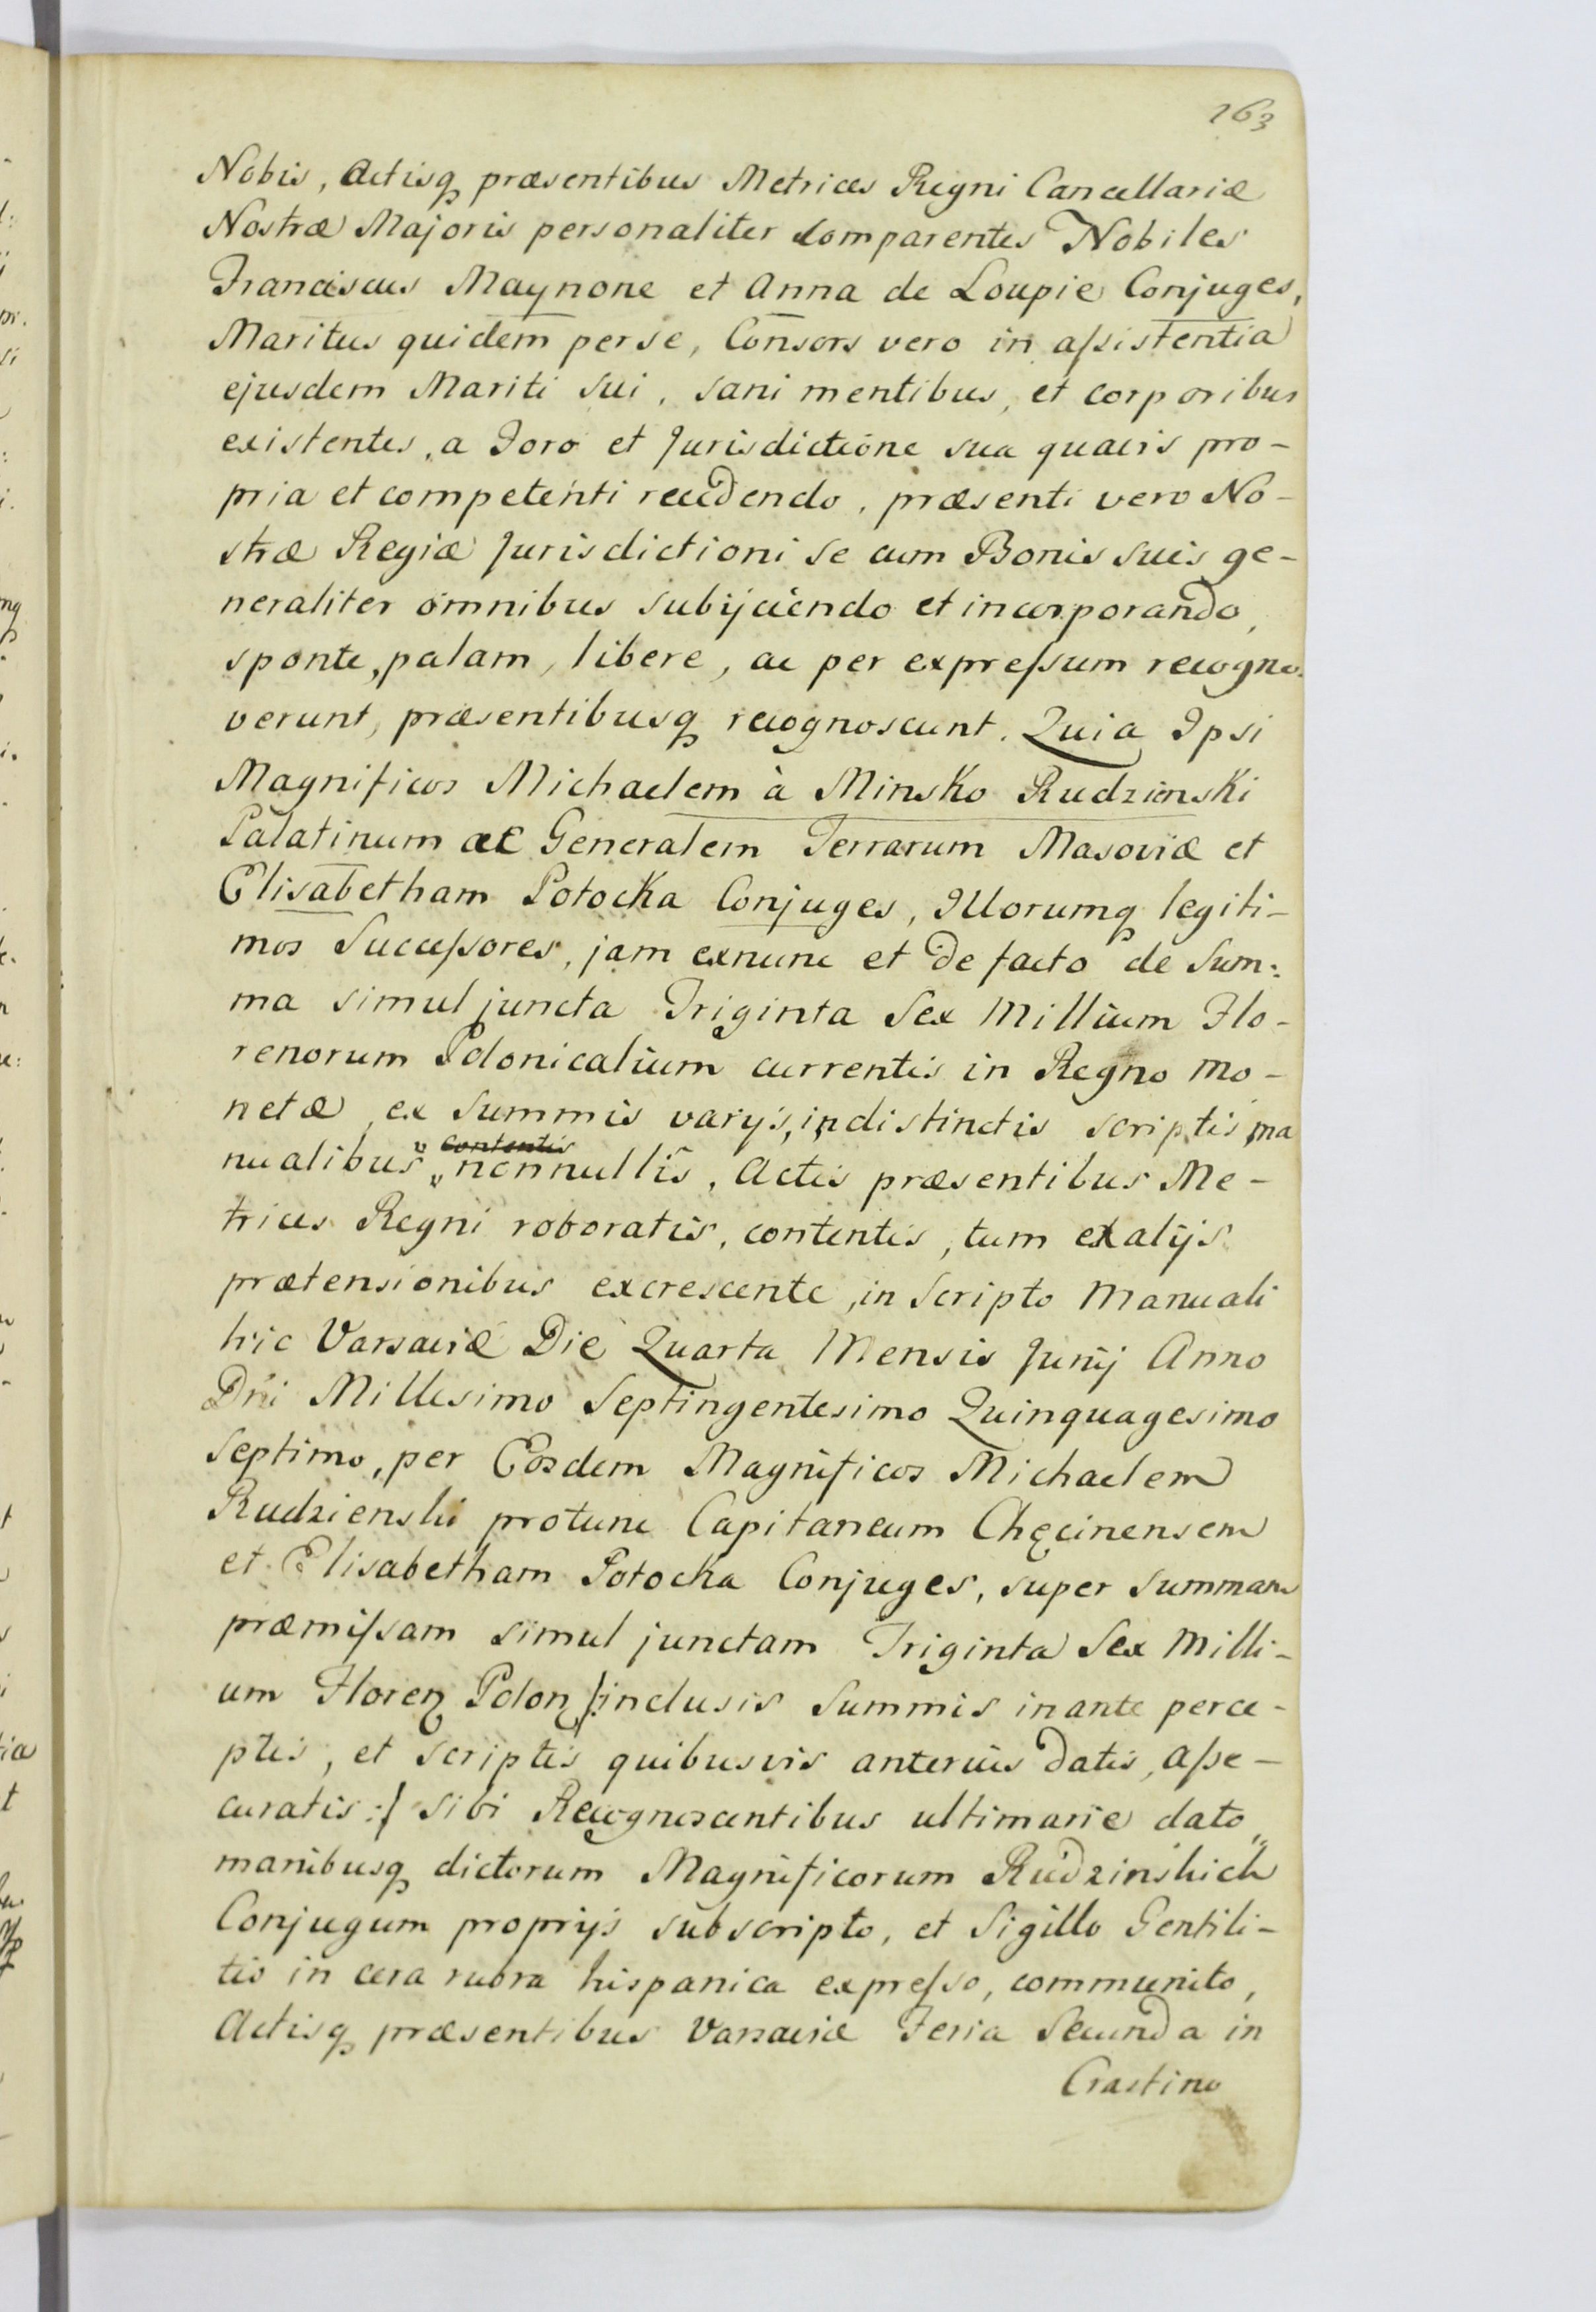 163
Nobis, Actisq præsentibus Metrices Regni Cancellariæ
Nostræ Majoris personaliter Comparentes Nobiles
Franciscus Maynone et Anna de Loupie Conjuges,
Maritus quidem per se, Consors vero in aſsistentia
ejusdem Mariti sui, sani mentibus, et corporibus
existentes, a Foro et Jurisdictione sua quavis pro-
pria et competenti recedendo, præsenti vero No-
stræ Regiæ Jurisdictioni se cum Bonis suis ge-
neraliter omnibus subijciendo et incorporando,
sponte, palam, libere, ac per expreſsum recogno-
verunt, præsentibusq recognoscunt. Quia Ipsi
Magnificos Michaelem à Minsko Rudzienski
Palatinum ac Generalem Terrarum Masoviæ et
Elisabetham Potocka Conjuges, Illorumq legiti-
mos Succeſsores, jam exnunc et de facto de Sum:
ma simul juncta Triginta Sex Millium Flo-
renorum Polonicalium currentis in Regno Mo-
netæ, ex Summis varijs, indistinctis scriptis ma
contentis
nualibus nonnullis, Actis præsentibus Me-
trices Regni roboratis, contentis, tum ex alijs
prætensionibus excrescente, in Scripto Manuali
hic Varsaviæ Die Quarta Mensis Junij Anno
Dni Millesimo Septingentesimo Quinquagesimo
Septimo, per Eosdem Magnificos Michaelem
Rudzienski protunc Capitaneum Chęcinensem
et Elisabetham Potocka Conjuges, super Summam
præmiſsam simul junctam Triginta Sex Milli-
um Floren Polon /:inclusis Summis inante perce-
ptis, et scriptis quibusvis anterius datis, aſse-
curatis:/ sibi Recognoscentibus ultimarie dato,
manibusq dictorum Magnificorum Rudzinskich
Conjugum proprijs subscripto, et Sigillo Gentili-
tio in cera rubra hispanica expreſso, communito,
Actisq præsentibus Varsaviæ Feria Secunda in
Crastino